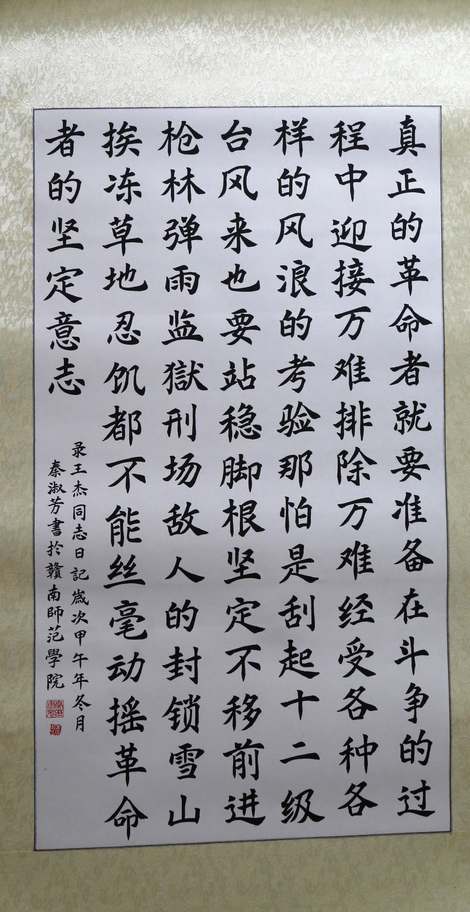 真正的革命者就要准备在斗争的过
程中迎接万难排除万难经受各种各
样的风浪的考验那怕是刮起十二级
台风来也要站稳脚根坚定不移前进
枪林弹雨监獄刑场敌人的封锁雪山
挨冻草地忍饥都不能丝毫动摇革命
者的坚定意志
录王杰同志日記歲次甲午年冬月
秦淑芳書於贛南師范學院